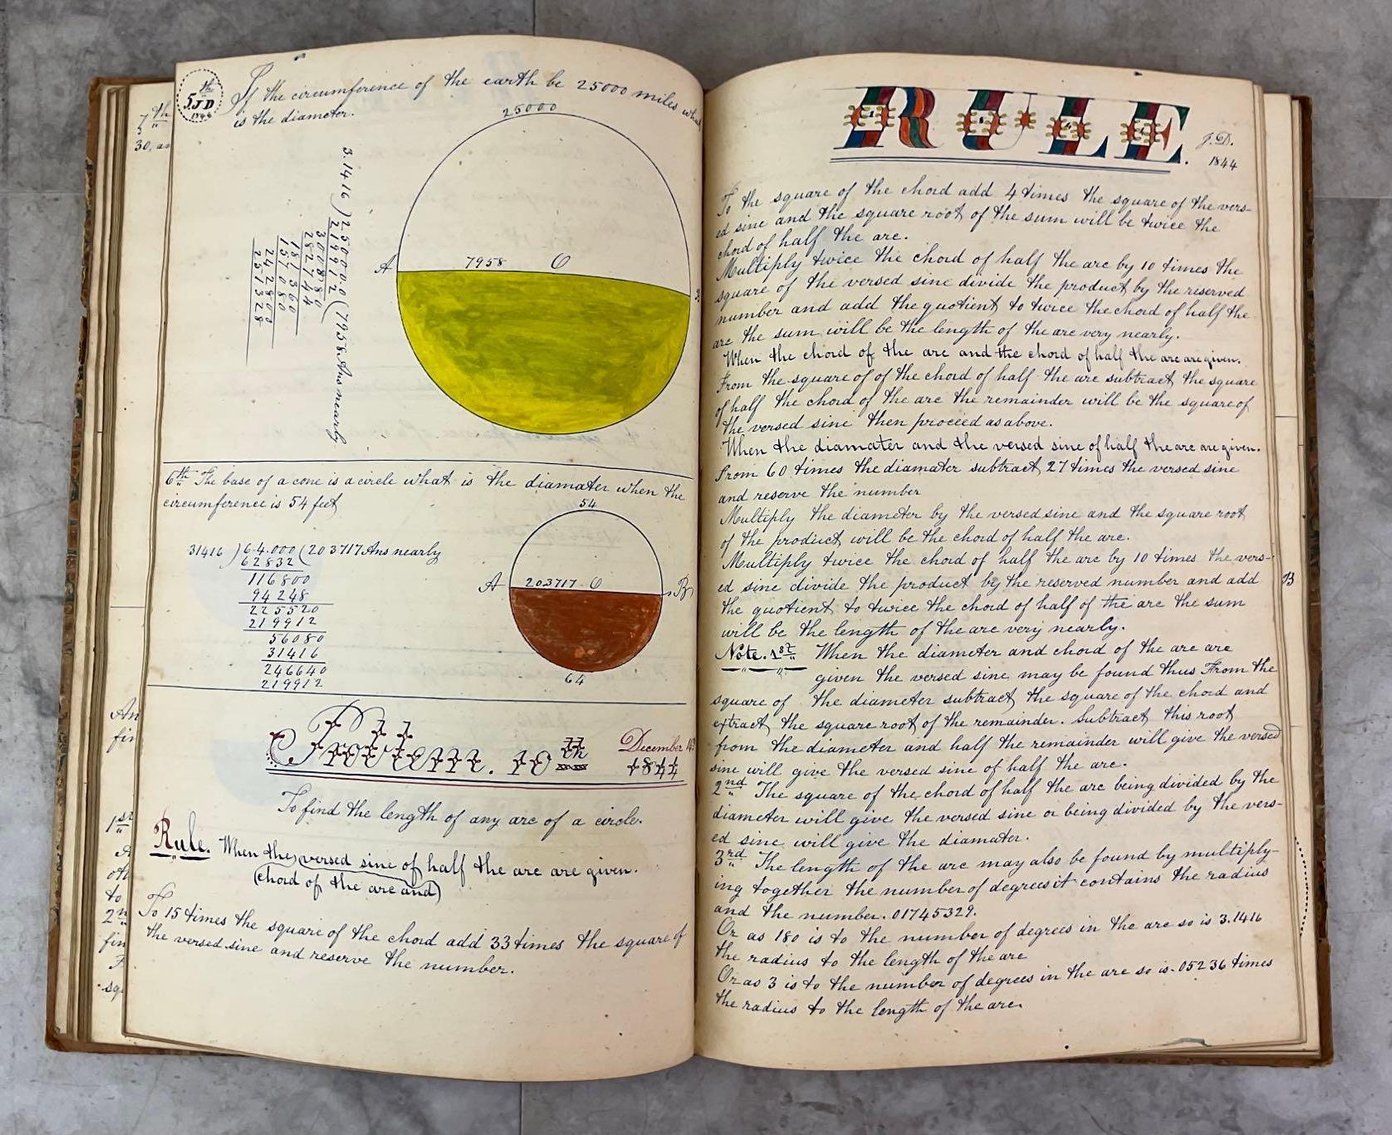 5th
JD
1844
If the circumference of the earth be 25000 miles what
is the diameter.
25000
A
7958
O
B
3.1416 ) 25000.0 ( 7958. Ans nearly
219912
300880
282744
181360
157080
242800
251328
6th The base of a cone is a circle what is the diamater when the
circumference is 54 feet
54
31416 ) 64.000 ( 203717. Ans nearly
62832
116800
94248
225520
219912
56080
31416
246640
219912
A
203717
O
B
64
Problem. 10th
December 4th
1844
To find the length of any arc of a circle.
Rule. When the versed sine of half the arc are given.
(chord of the arc and)
To 15 times the square of the chord add 33 times the square of
the versed sine and reserve the number.
RULE.
J.D.
1844
To the square of the chord add 4 times the square of the vers-
ed sine and the square root of the sum will be twice the
chord of half the arc.
Multiply twice the chord of half the arc by 10 times the
square of the versed sine divide the product by the reserved
number and add the quotient to twice the chord of half the
arc the sum will be the length of the arc very nearly.
When the chord of the arc and the chord of half the arc are given.
From the square of of the chord of half the arc subtract the square
of half the chord of the arc the remainder will be the square of
the versed sine then proceed as above.
When the diamater and the versed sine of half the arc are given.
From 60 times the diamater subtract 27 times the versed sine
and reserve the number
Multiply the diameter by the versed sine and the square root
of the product will be the chord of half the arc.
Multiply twice the chord of half the arc by 10 times the vers-
ed sine divide the product by the reserved number and add
the quotient to twice the chord of half of the arc the sum
will be the length of the arc very nearly.
Note. 1st When the diameter and chord of the arc are
given the versed sine may be found thus From the
square of the diameter subtract the square of the chord and
extract the square root of the remainder. Subtract this root
from the diameter and half the remainder will give the versed
sine will give the versed sine of half the arc.
2nd The square of the chord of half the arc being divided by the
diameter will give the versed sine or being divided by the vers-
ed sine will give the diamater.
3rd The length of the arc may also be found by multiply-
ing together the number of degrees it contains the radius
and the number .01745329.
Or as 180 is to the number of degrees in the arc so is 3.1416
the radius to the length of the arc
Or as 3 is to the number of degrees in the arc so is .05236 times
the radius to the length of the arc.
B
7th
30, an
An
fin
1st
A
oth
to
2n
fin
sq